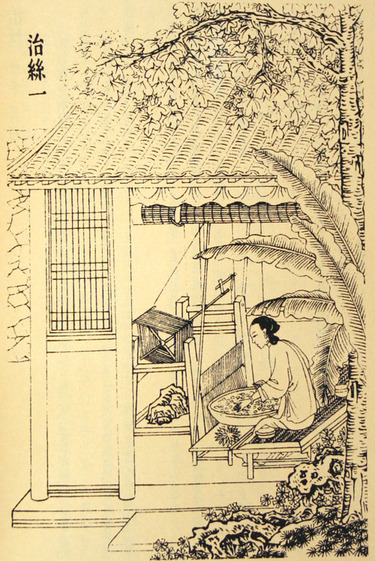 治絲一